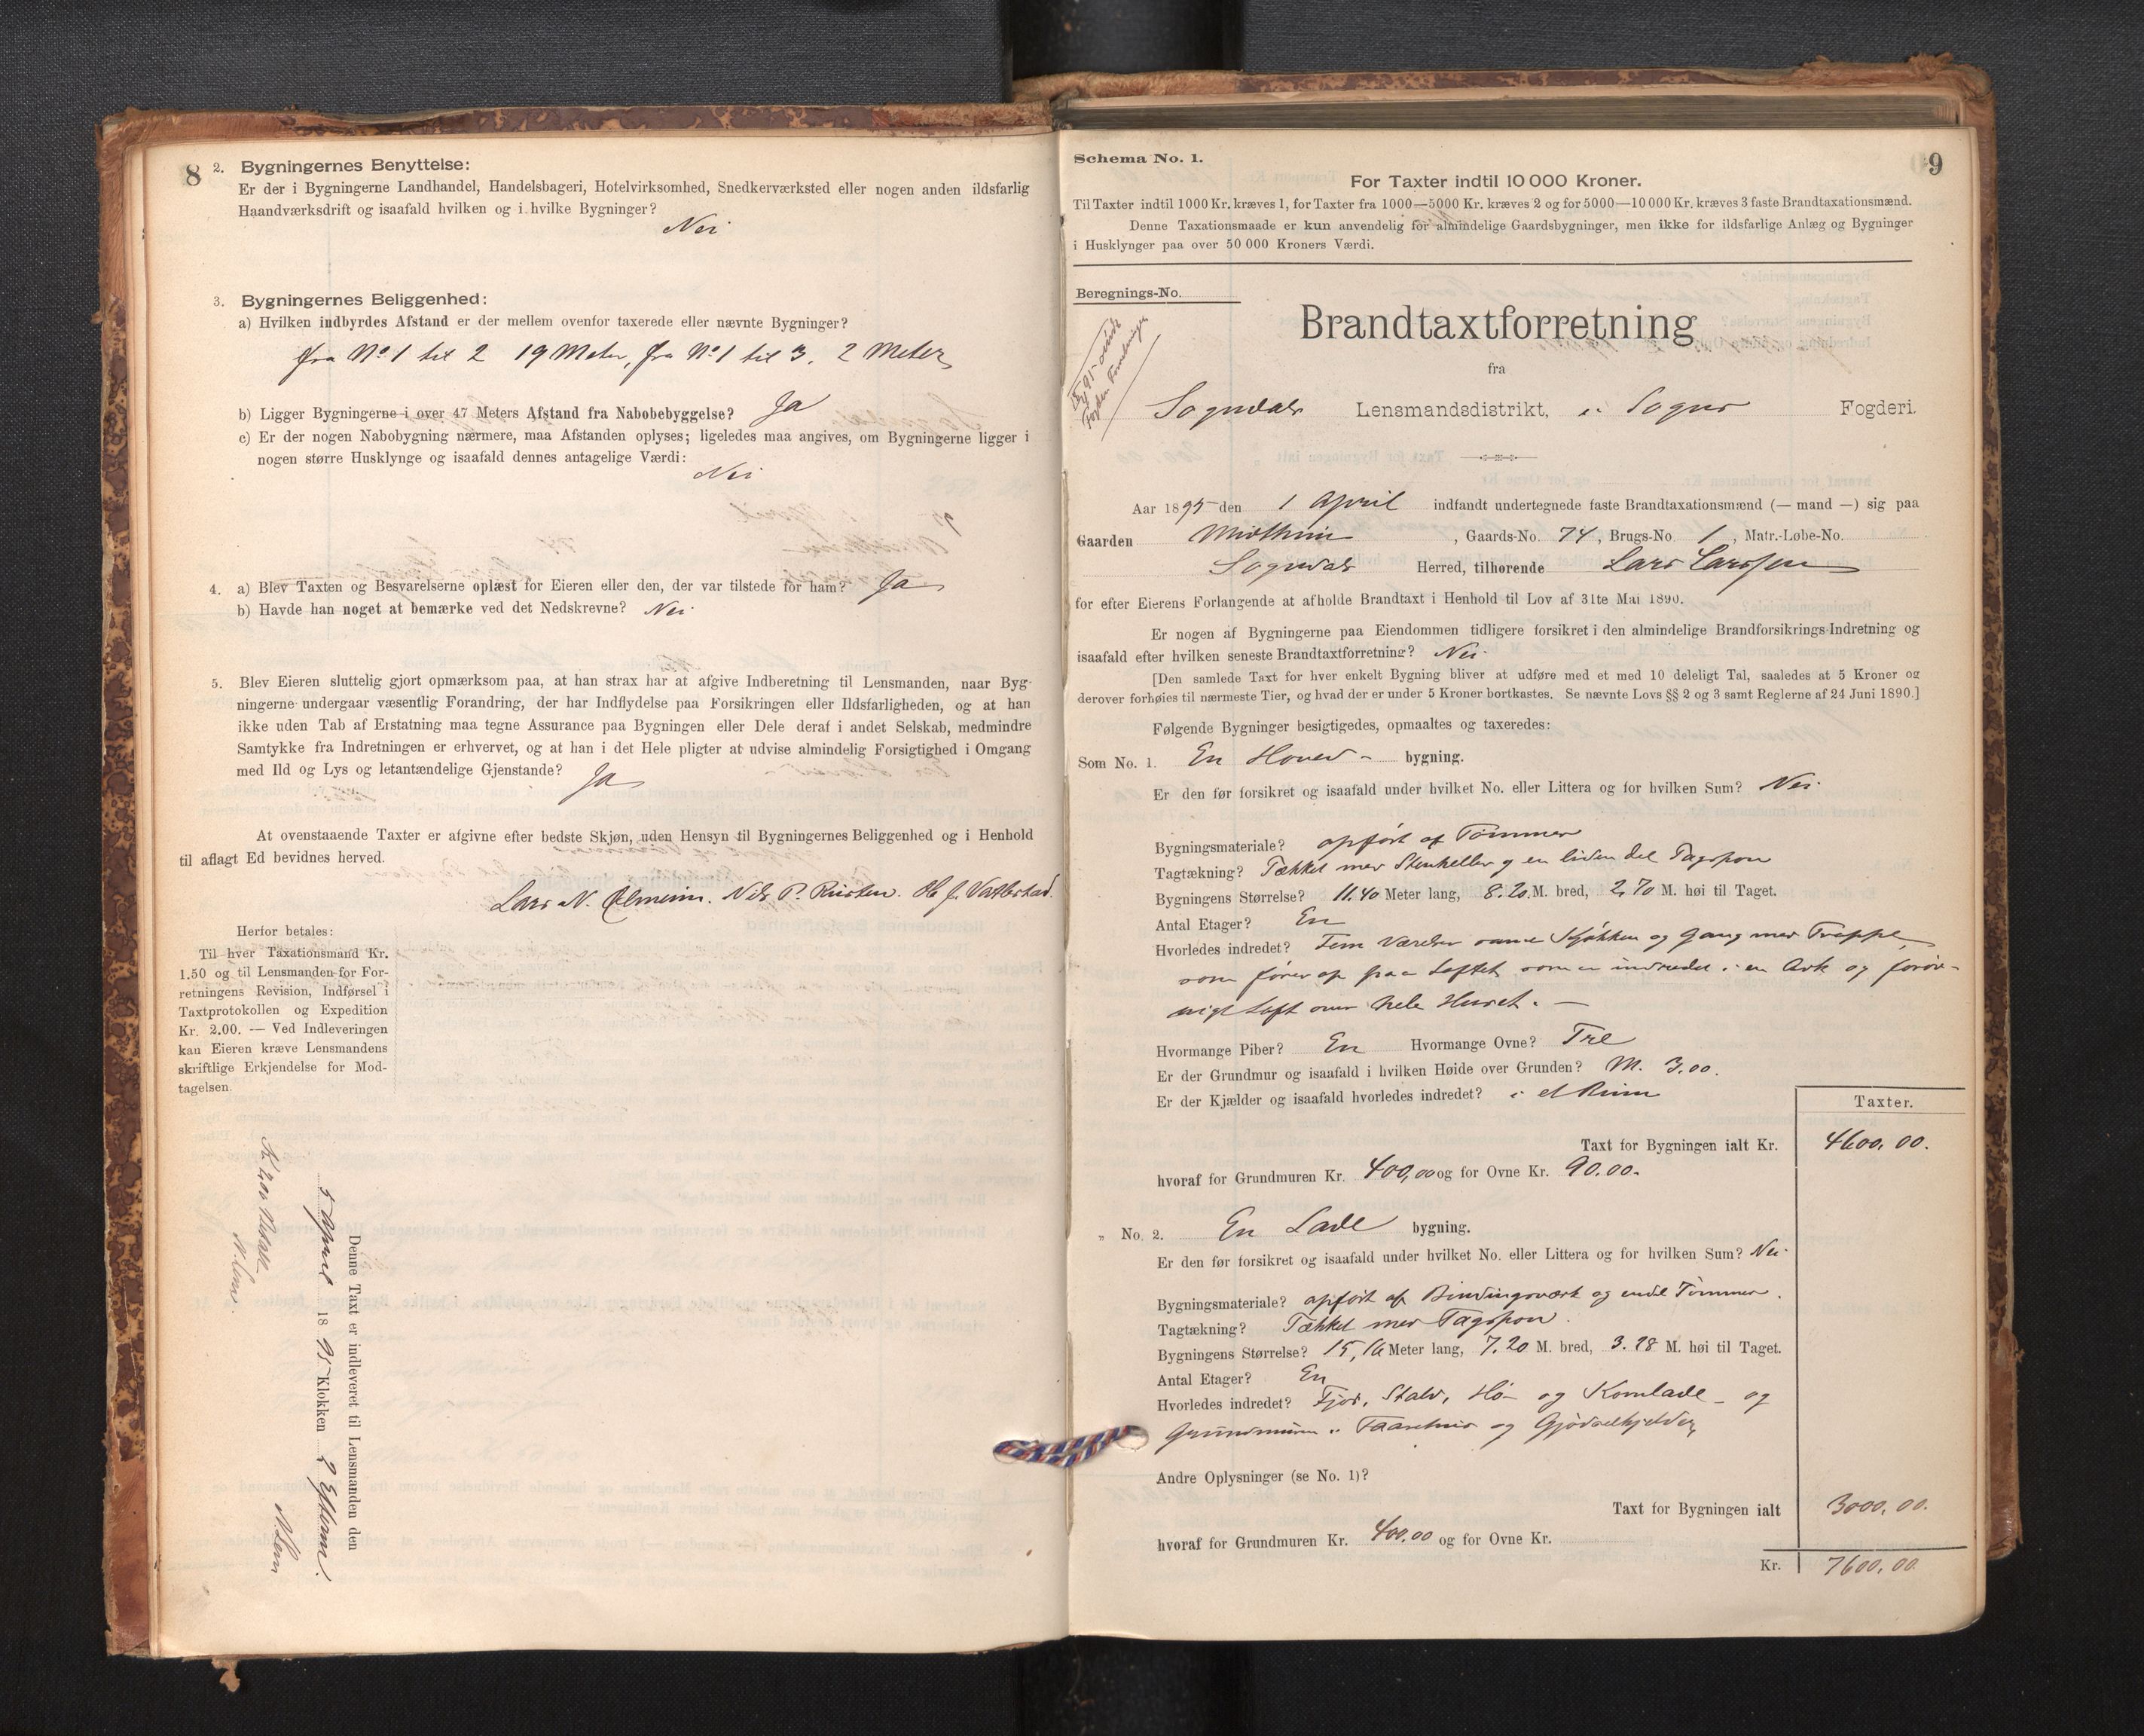 8
2. Bygningernes Benyttelse:
Er der i Bygningerne Landhandel, Handelsbageri, Hotelvirksomhed, Snedkerværksted eller nogen anden ildsfarlig
Haandværksdrift og isaafald hvilken og i hvilke Bygninger?
Nei
3. Bygningernes Beliggenhed:
a) Hvilken indbyrdes Afstand er der mellem ovenfor taxerede eller nævnte Bygninger?
fra No 1 til 2 19 Meter, fra No 1 til 3, 2 Meter
b) Ligger Bygningerne i over 47 Meters Afstand fra Nabobebyggelse? Ja
c) Er der nogen Nabobygning nærmere, maa Afstanden oplyses; ligeledes maa angives, om Bygningerne ligger i
nogen større Husklynge og isaafald dennes antagelige Værdi:
Nei
4. a) Blev Taxten og Besvarelserne oplæst for Eieren eller den, der var tilstede for ham? Ja
b) Havde han noget at bemærke ved det Nedskrevne? Nei
5. Blev Eieren sluttelig gjort opmærksom paa, at han strax har at afgive Indberetning til Lensmanden, naar Byg-
ningerne undergaar væsentlig Forandring, der har Indflydelse paa Forsikringen eller Ildsfarligheden, og at han
ikke uden Tab af Erstatning maa tegne Assurance paa Bygningen eller Dele deraf i andet Selskab, medmindre
Samtykke fra Indretningen er erhvervet, og at han i det Hele pligter at udvise almindelig Forsigtighed i Omgang
med Ild og Lys og letantændelige Gjenstande?
Ja
At ovenstaaende Taxter er afgivne efter bedste Skjøn, uden Hensyn til Bygningernes Beliggenhed og i Henhold
til aflagt Ed bevidnes herved.
Lars N. Nils P. H. J.
Herfor betales:
Til hver Taxationsmand Kr.
1.50 og til Lensmanden for For-
retningens Revision, Indførsel i
Taxtprotokollen og Expedition
Kr. 2.00. — Ved Indleveringen
kan Eieren kræve Lensmandens
skriftlige Erkjendelse for Mod-
tagelsen.
Denne Taxt er indleveret til Lensmanden den
5 April 1895 Klokken 2 Efterm.
Kr. 2,00 Betalt
9
Schema No. 1.
For Taxter indtil 10 000 Kroner.
Til Taxter indtil 1000 Kr. kræves 1, for Taxter fra 1000—5000 Kr. kræves 2 og for 5000—10 000 Kr. kræves 3 faste Brandtaxationsmænd.
Denne Taxationsmaade er kun anvendelig for almindelige Gaardsbygninger, men ikke for ildsfarlige Anlæg og Bygninger
i Husklynger paa over 50 000 Kroners Værdi.
Beregnings-No.
Brandtaxtforretning
fra
Sogndals Lensmandsdistrikt, i Sogns Fogderi.
Aar 1895 den 1 April indfandt undertegnede faste Brandtaxationsmænd (— mand —) sig paa
Gaarden , Gaards-No. 74, Brugs-No 1, Matr.-Løbe-No.
Sogndals Herred, tilhørende Lars Larssen
for efter Eierens Forlangende at afholde Brandtaxt i Henhold til Lov af 31te Mai 1890.
Er nogen af Bygningerne paa Eiendommen tidligere forsikret i den almindelige Brandforsikrings-Indretning og
isaafald efter hvilken seneste Brandtaxtforretning? Nei
[Den samlede Taxt for hver enkelt Bygning bliver at udføre med et med 10 deleligt Tal, saaledes at 5 Kroner og
derover forhøies til nærmeste Tier, og hvad der er under 5 Kroner bortkastes. Se nævnte Lovs §§ 2 og 3 samt Reglerne af 24 Juni 1890.]
Følgende Bygninger besigtigedes, opmaaltes og taxeredes:
Som No. 1. En Hoved- bygning.
Er den før forsikret og isaafald under hvilket No. eller Littera og for hvilken Sum? Nei
Bygningsmateriale? opført af Tømmer
Tagtækning? Tækket med Stenheller og en liden del Tagspon
Bygningens Størrelse? 11.40 Meter lang, 8.20 M. bred, 2,70 M. høi til Taget.
Antal Etager? En
Hvorledes indredet? Fem Værelser samt Kjøkken og Gang med Trappe,
som fører op paa Loftet som er indredet i en Ark og forøv-
rigt Loft over hele Huset. —
Hvormange Piber? En Hvormange Ovne? Tre
Er der Grundmur og isaafald i hvilken Høide over Grunden? M. 3,00.
Er der Kjælder og isaafald hvorledes indredet? i et Rum
Taxter.
Taxt for Bygningen ialt Kr. 4600,00.
hvoraf for Grundmuren Kr. 400,00 og for Ovne Kr. 90.00.
" No. 2. En Lade bygning.
Er den før forsikret og isaafald under hvilket No. eller Littera og for hvilken Sum? Nei
Bygningsmateriale? opført af Bindingsværk og endel Tømmer.
Tagtækning? Tækket med Tagspon.
Bygningens Størrelse? 15,16 Meter lang, 7.20 M. bred, 3.28 M. høi til Taget.
Antal Etager? En
Hvorledes indredet? Fjøs, Stald, Hø- og Kornlade - og
Grundmuren i og Gjødselkjelder,
Andre Oplysninger (se No. 1)?
Taxt for Bygningen ialt 3000,00.
hvoraf for Grundmuren Kr. 400,00 og for Ovne Kr.
Kr. 7600,00.